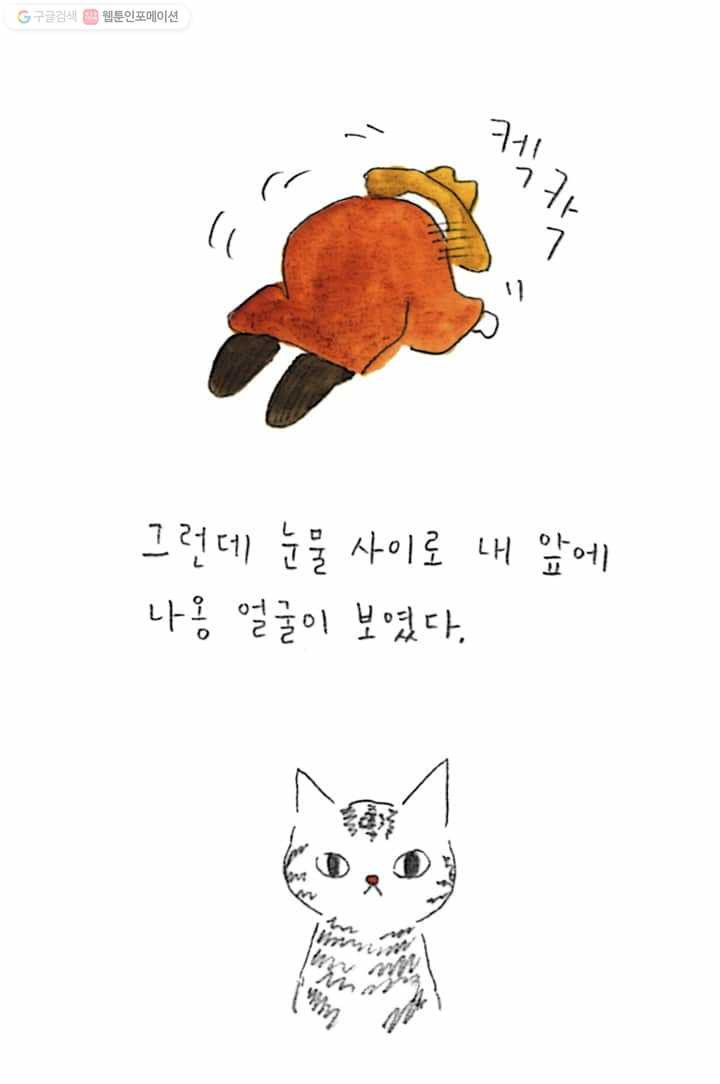 구글검색 웹툰인포메이션
켁
칵
그런데 눈물 사이로 내 앞에
나옹 얼굴이 보였다.